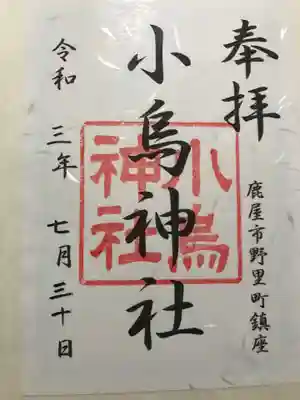 奉拝
鹿屋市野里町鎮座
小烏神社
小烏
神社
令和 三年 七月三十日